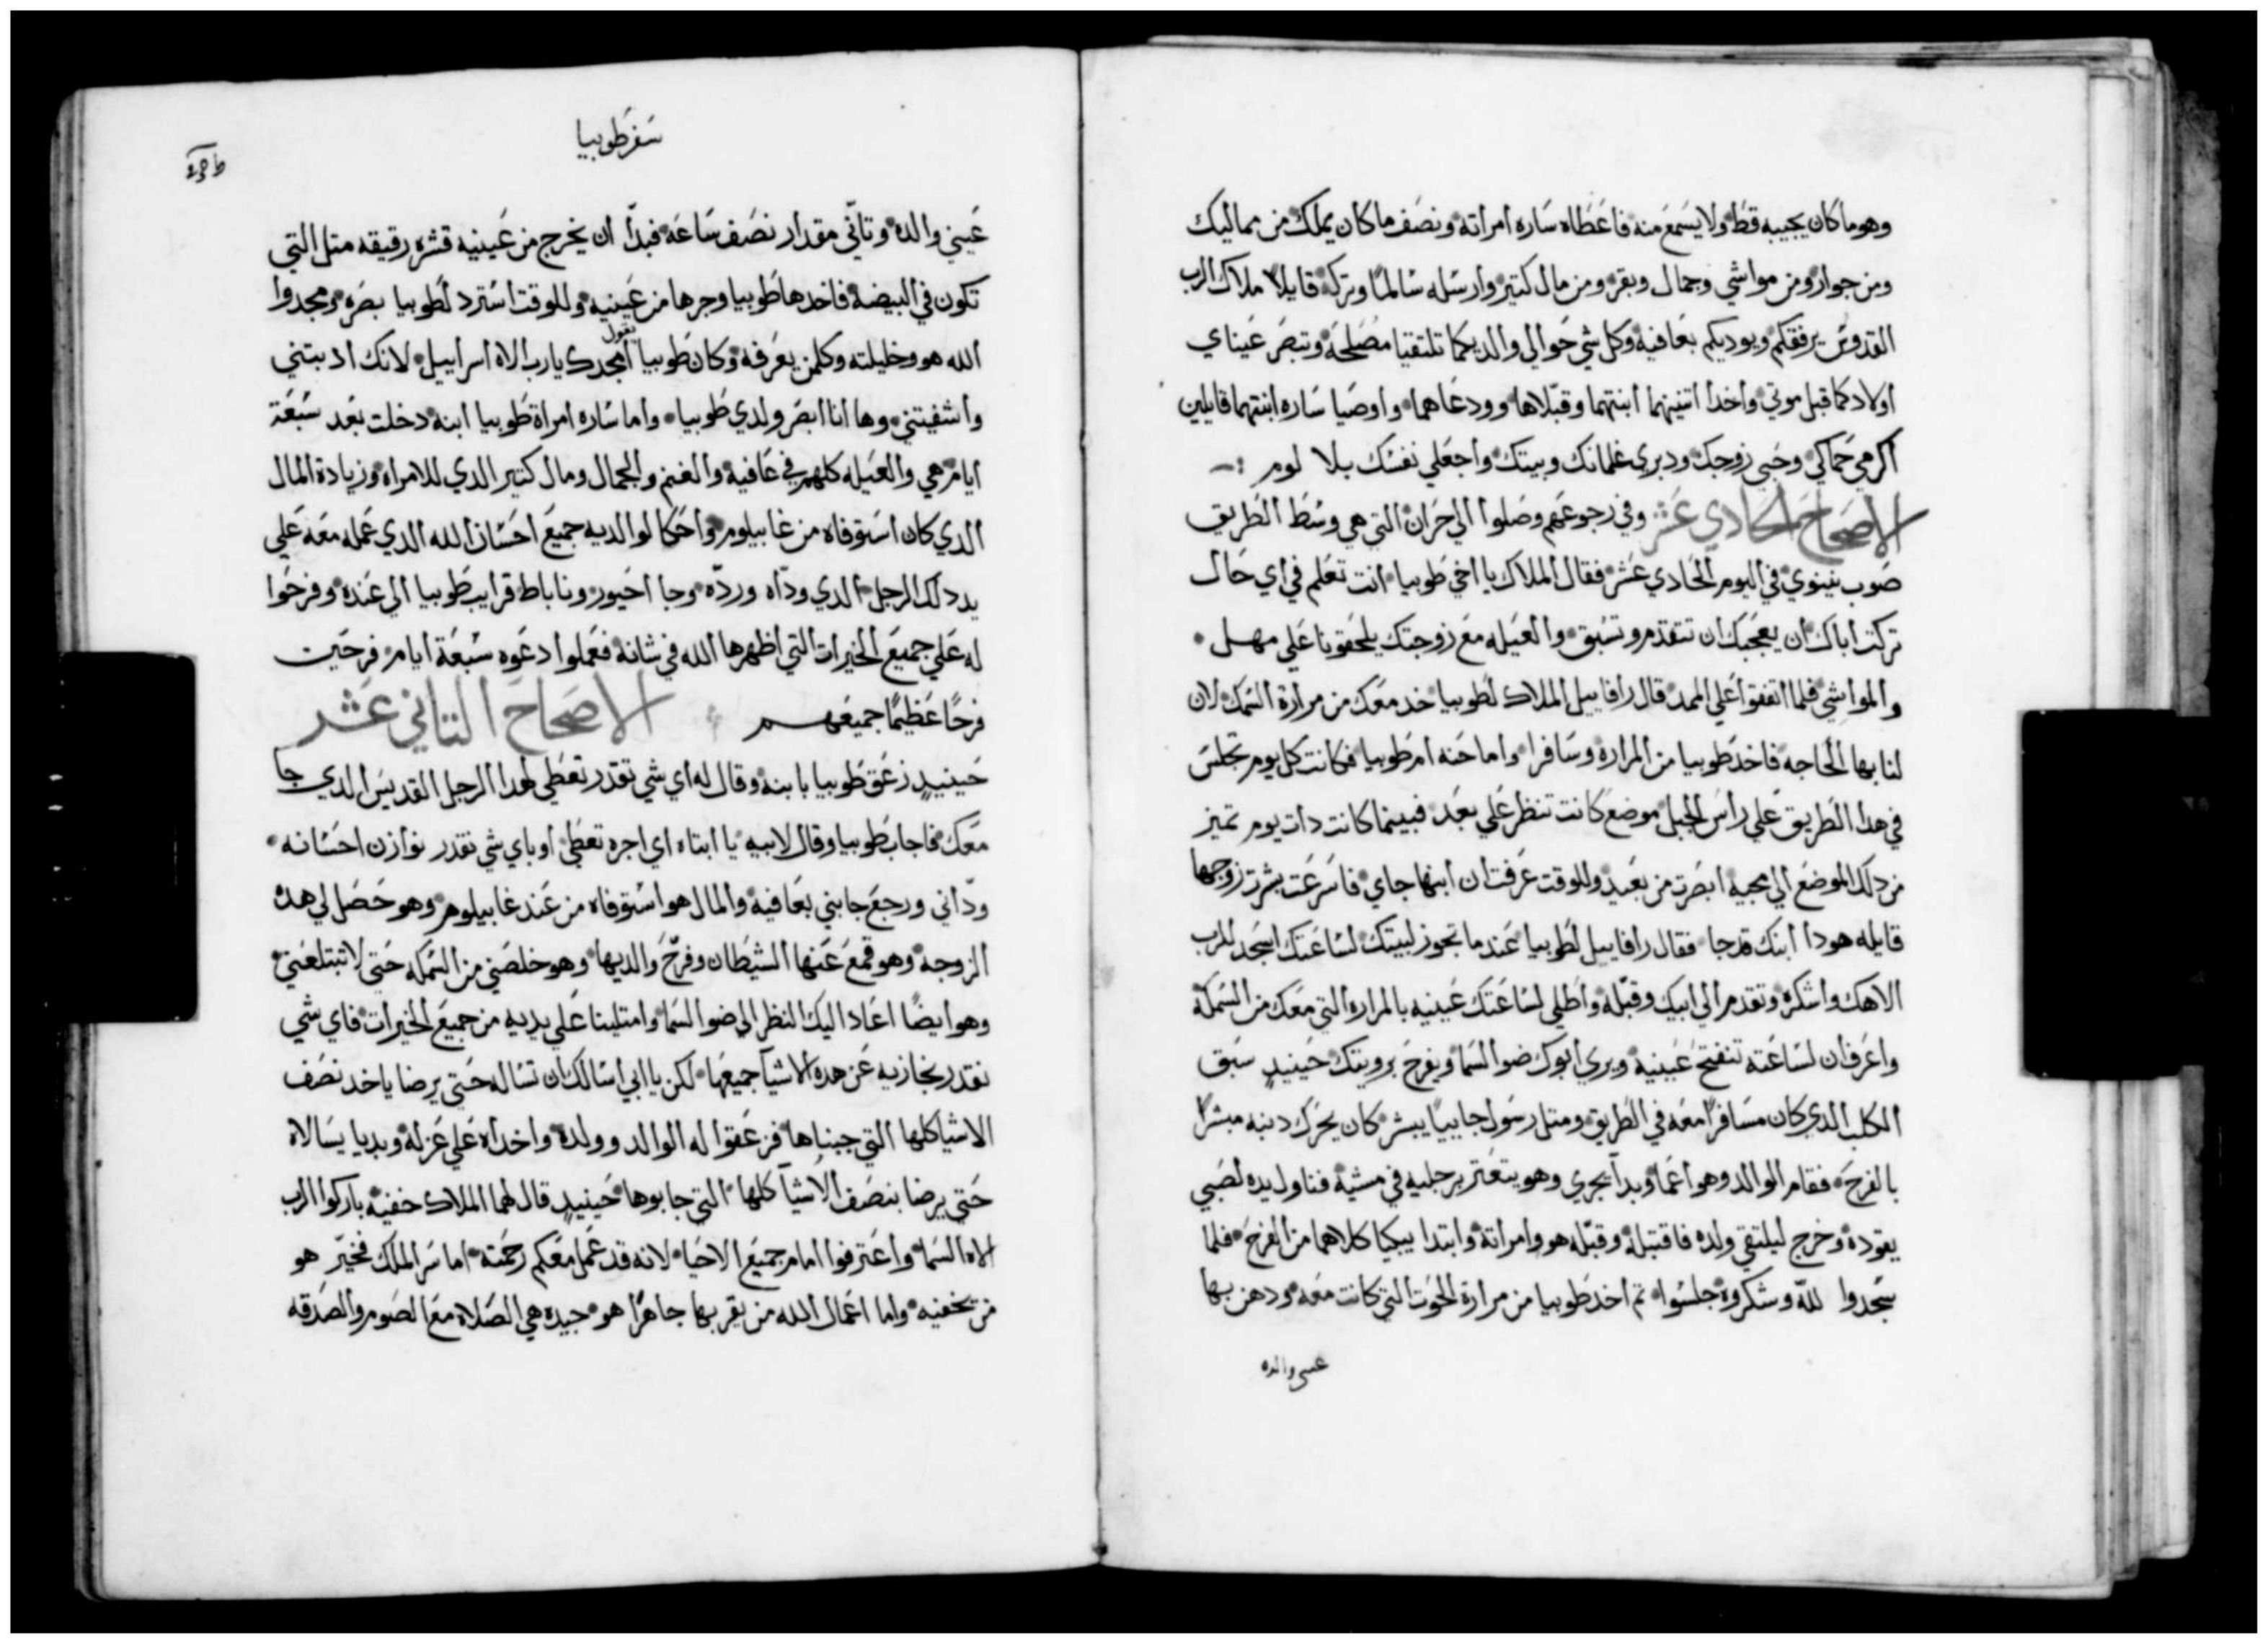 وهو ما كان يجيبه قط ولا يسمع منه فاعطاه ساره امراته ونصف ما كان يملك من مماليك
ومن جوار ومن مواشي وجمال وبقر ومن مال كتير وارسله سالمًا وتركه قايلًا ملاك الرب
القدوس يرفقكم ويوديكم بعافيه وكل شي حوالي والديكما تلتقيا مصلحه وتبصر عيناي
اولادكما قبل موتي واخدا اتنينهما ابنتهما وقبّلاها وودعاهما واوصيا ساره ابنتهما قايلين
اكرمي حماكي وحبي زوجك ودبري غلمانك وبيتك واجعلي نفسك بلا لوم
الاصحاح الحادي عشر وفي رجوعهم وصلوا الي حران التي هي وسط الطريق
صوب نينوي في اليوم الحادي عشر فقال الملاك يا اخي طوبيا انت تعلم في اي حال
تركت اباك ان يعجبك ان نتقدم ونسبق والعيله مع زوجتك يلحقونا علي مهل
والمواشي فلما اتفقوا علي الممد قال رافاييل الملاك لطوبيا خد معك من مرارة السمك لان
لنا بها الحاجه فاخد طوبيا من المراره وسافرا واما حنه ام طوبيا فكانت كل يوم تجلس
في هدا الطريق علي راس الجبل موضع كانت تنظر علي بعد فبينما كانت دات يوم تميز
من دلك الموضع الي مجيه ابصرت من بعيد وللوقت عرفت ان ابنها جاي فاسرعت بشرت زوجها
قايله هودا ابنك قد جا فقال رافاييل لطوبيا عندما تجوز لبيتك لساعتك اسجد للرب
الاهك واشكره وتقدم الي ابيك وقبّله واطلي لساعتك عينيه بالمراره التي معك من السمكة
واعرف ان لساعته تنفتح عينيه ويري ابوك ضو السما ويفرح برويتك حينيدٍ سبق
الكلب الدي كان مسافرًا معه في الطريق ومتل رسول جاييًا يبشر كان يحرك دنبه مبشرًا
بالفرح فقام الوالد وهو اعما وبدا يجري وهو يتعتر برجليه في مشيه فناول يده لصبي
يقوده وخرج ليلتقي ولده فاقتبله وقبّله هو وامراته وابتدا يبكيا كلاهما من الفرح فلما
سجدوا للّه وشكروه جلسوا تم اخد طوبيا من مرارة الحوت التي كانت معه ودهن بها
عيني والده
سفر طوبيا
عيني والده وتانّي مقدار نصف ساعه فبدا ان يخرج من عينيه قشره رقيقه متل التي
تكون في البيضة فاخدها طوبيا وجرها من عينيه وللوقت استرد لطوبيا بصره ومجدوا
الله هو وخليلته وكلمن يعرفه وكان طوبيا يقول امجدك يا رب الاه اسراييل لانك ادبتني
واشفيتني وها انا ابصر ولدي طوبيا واما ساره امراة طوبيا ابنه دخلت بعد سبعة
ايام هي والعيله كلهم في عافيه والغنم والجمال ومال كتير الدي للامراه وزيادة المال
الدي كان استوفاه من غابيلوم واحكا لوالديه جميع احسان الله الدي عمله معه علي
يد دلك الرجل الدي ودّاه وردّه وجا احيور وناباط قرايب طوبيا الي عنده وفرحوا
له علي جميع الخيرات التي اظهرها الله في شانه فعملوا دعوه سبعة ايام فرحين
فرحًا عظيمًا جميعهم الاصحاح التاني عشر
حينيدٍ زعق طوبيا بابنه وقال له اي شي نقدر نعطي لهدا الرجل القديس الدي جا
معك فاجاب طوبيا وقال لابيه يا ابتاه اي اجره نعطي او باي شي نقدر نوازن احسانه
ودّاني ورجع جابني بعافيه والمال هو استوفاه من عند غابيلوم وهو حصل لي هده
الزوجه وهو قمع عنها الشيطان وفرّح والديها وهو خلصني من السمكه حتي لا تبتلعني
وهو ايضًا اعاد اليك النظر الي ضو السما وامتلينا علي يديه من جميع الخيرات فاي شي
نقدر نجازيه عن هده الاشيا جميعها لكن يا ابي اسالك ان تساله حتي يرضا ياخد نصف
الاشيا كلها التي جبناها فزعقوا له الوالد وولده واخداه علي عزله وبديا يسالاه
حتي يرضا بنصف الاشيا كلها التي جابوها حينيدٍ قال لهما الملاك خفيه باركوا الرب
الاه السما واعترفوا امام جميع الاحيا لانه قد عمل معكم رحمته اما سر الملك فخيّر هو
من يخفيه واما اعمال الله من يقر بها جاهرًا هو جيده هي الصلاه مع الصوم والصدقه